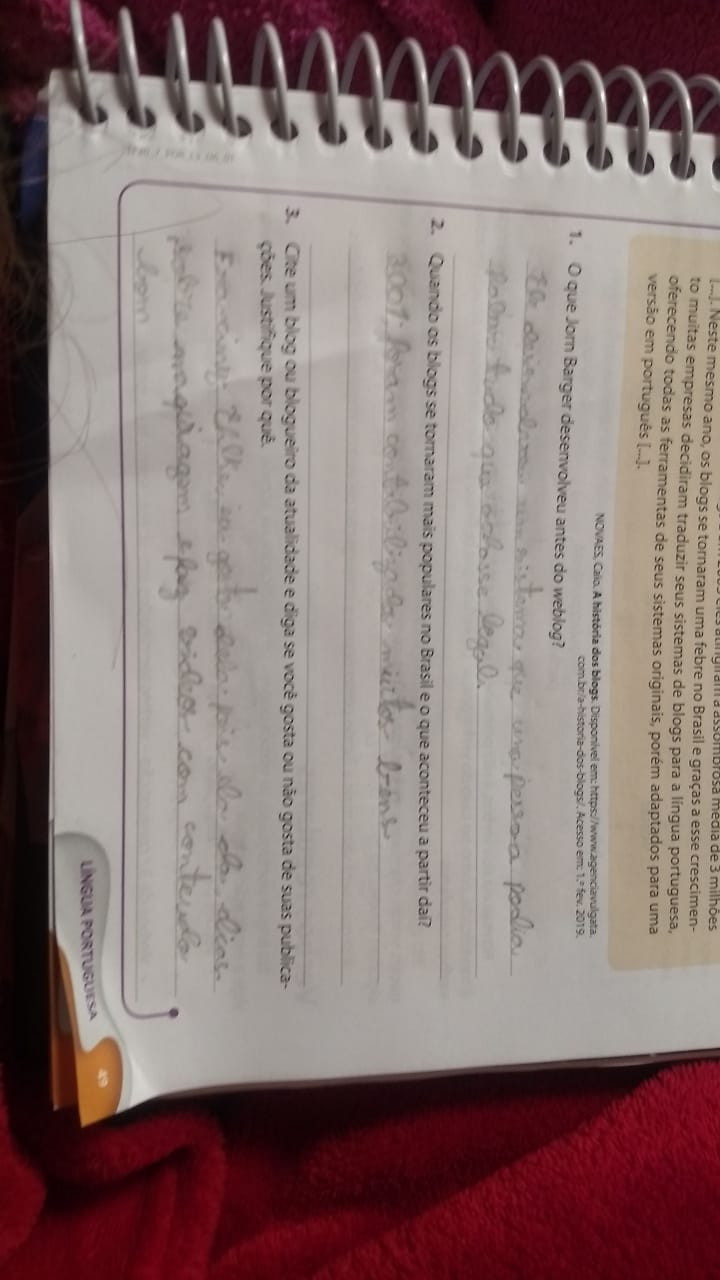 [...]. Neste mesmo ano, os blogs se tornaram uma febre no Brasil e graças a esse crescimen-
to muitas empresas decidiram traduzir seus sistemas de blogs para a língua portuguesa,
oferecendo todas as ferramentas de seus sistemas originais, porém adaptados para uma
versão em português [...].
NOVAES, Caio. A história dos blogs. Disponível em: https://www.agenciavulgata.
com.br/a-historia-dos-blogs/. Acesso em: 1.º fev. 2019.
1. O que Jorn Barger desenvolveu antes do weblog?
Ele desenvolveu um sistema que uma pessoa podia
tudo que achasse legal.
2. Quando os blogs se tornaram mais populares no Brasil e o que aconteceu a partir daí?
2001; foram muitos bens.
3. Cite um blog ou blogueiro da atualidade e diga se você gosta ou não gosta de suas publica-
ções. Justifique por quê.
eu gosto dela pois ela da dicas
sobre maquiagem e faz videos com conteúdo
bom
LÍNGUA PORTUGUESA
49